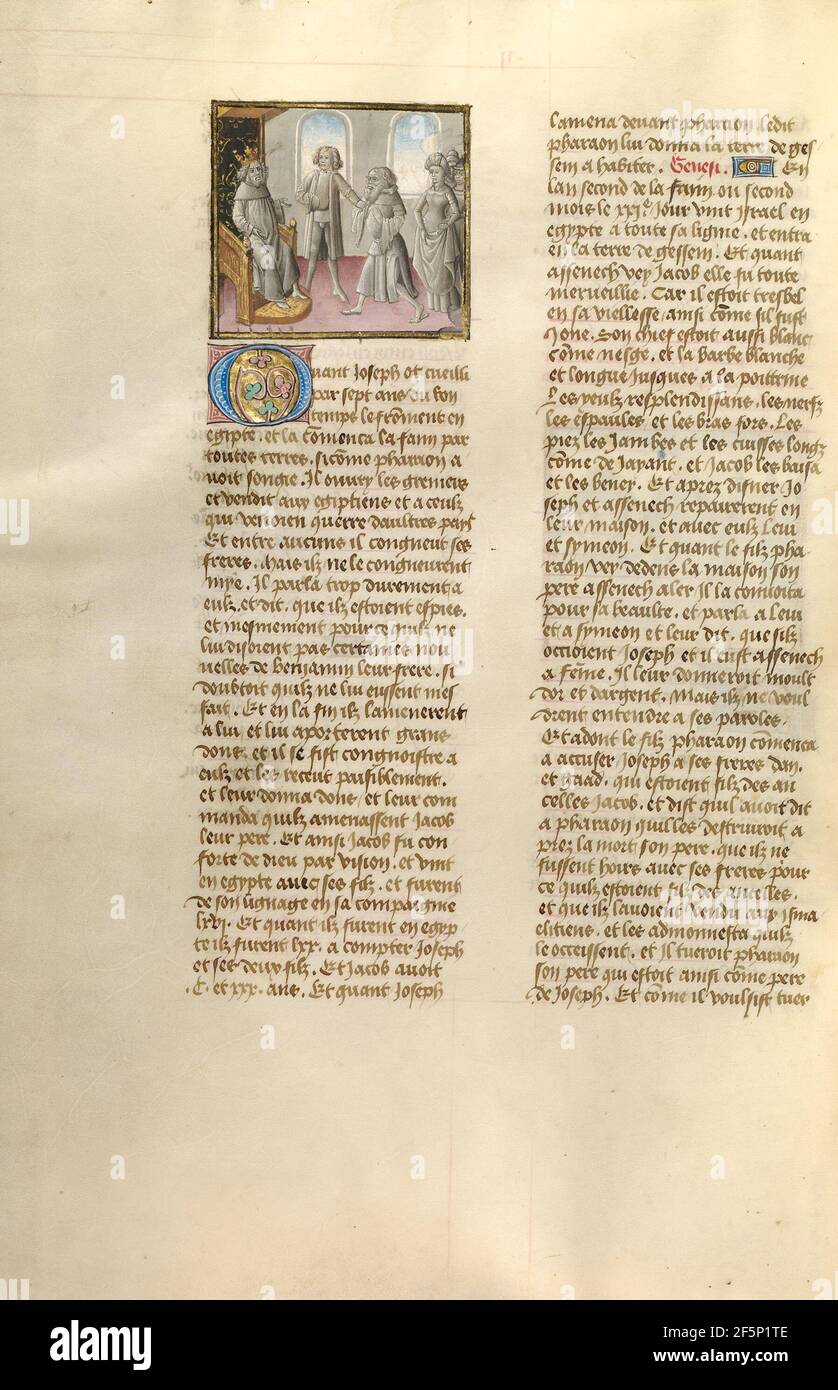 Quant Joseph ot cueilli
par sept ans du bon
temps le froment en
egipte. et la comenca la fain par
toutes terres. si come pharaon a
voit songie. Il ouvry les greniers
et vendit aux egiptiens et a ceulx
qui venoien querre daultres pars
Et entre aucuns il congneut ses
freres. Mais ilz ne le congneurent
mye. Il parla trop durement a
eulx. et dit. que ilz estoient espies.
et mesmement pour ce quilz ne
lui disoient pas certaines nou
velles de Benjamin leur frere. si
doubtoit quilz ne lui eussent mes
fait. Et en la fin ilz lamenerent
a lui et lui aporterent grans
dons. et il se fist congnoistre a
eulx et les receut paisiblement.
et leur donna dons / et leur com
manda quilz amenassent Jacob
leur pere. Et ainsi Jacob fu con
forte de dieu par vision. et vint
en egypte avec ses filz. et furent
de son lignage en sa compaignie
lxvi. Et quant ilz furent en egyp
te ilz furent lxx. a compter Joseph
et ses deux filz. Et Jacob avoit
.C. et xxx. ans. Et quant Joseph
lamena devant pharaon ledit
pharaon lui donna la terre de ges
sem a habiter. Genesi. En
lan second de la fain ou second
mois le xxi.e Jour vint israel en
egypte a toute sa lignie. et entra
en la terre de gessem. Et quant
assenech vey Jacob elle fu toute
merveillie. Car il estoit tresbel
en sa viellesse / ainsi come sil fust
Jone. Son chief estoit aussi blanc
come nesge. et la barbe blanche
et longue jusques a la poittrine
Les yeulx resplendissans. les nerfz
les espaules et les bras fors. Les
piez les Jambes et les cuisses longz
come de Jayant. et Jacob les baisa
et les beney. Et aprez disner Jo
seph et assenech repairerent en
leur maison. et avec eulx Levi
et symeon. Et quant le filz pha-
raon vey dedens la maison son
pere assenech aler Il la convoita
pour sa beaulte. et parla a Levi
et a symeon et leur dit. que silz
occioient Joseph et il eust assenech
a feme. Il leur donneroit moult
dor et dargent. Mais ilz ne voul
drent entendre a ses paroles.
Et adont le filz pharaon comenca
a accuser Joseph a ses freres dan.
et gaad. qui estoient filz des an
celles Jacob. et dist quil avoit dit
a pharaon quil les destruiroit a
prez la mort son pere. que ilz ne
fussent hoirs avec ses freres pour
ce quilz estoient filz des ancelles.
et que ilz lavoient vendu aux isma
elitiens. et les admonnesta quilz
le occeissent. et il tueroit pharaon
son pere qui estoit ainsi come pere
de Joseph. Et come il voulsist tuer
alamy
Image ID: 2F5P1TE
www.alamy.com